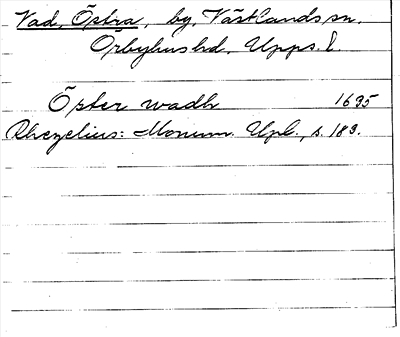 Vad, Östra, by, Västlands sn.
Örbyhus hd. Upps. l.
Öster wadh 1635
Rhezelius: Monum. Upl., s. 189.